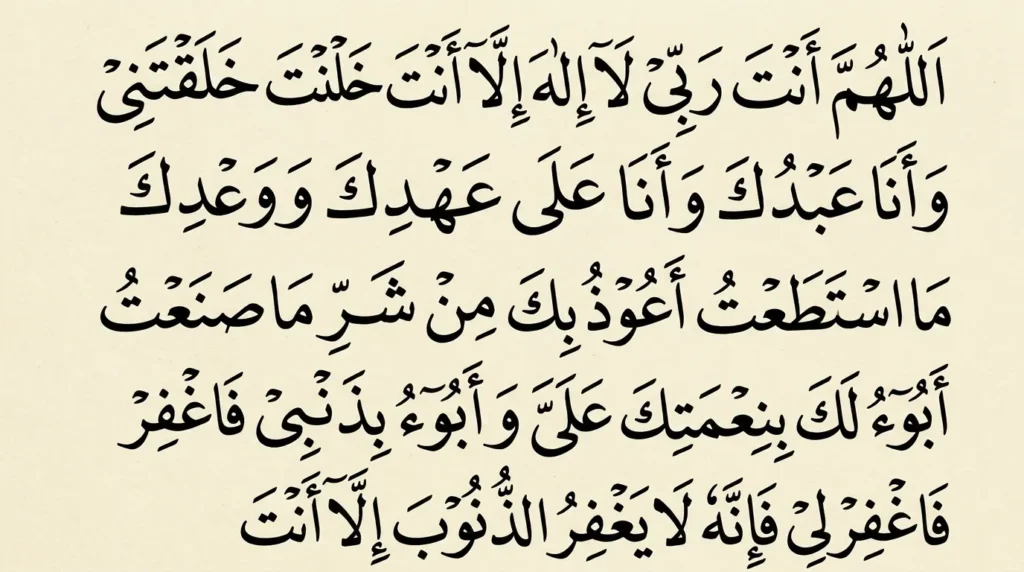 اَللّٰهُمَّ أَنْتَ رَبِّيْ لَآ إِلٰهَ إِلَّآ أَنْتَ خَلْنْتَ خَلَقْتَنِيْ
وَأَنَا عَبْدُكَ وَأَنَا عَلَى عَهْدِكَ وَوَعْدِكَ
مَا اسْتَطَعْتُ أَعُوْذُ بِكَ مِنْ شَرِّ مَا صَنَعْتُ
أَبُوْٓءُ لَكَ بِنِعْمَتِكَ عَلَيَّ وَ أَبُوْٓءُ بِذَنْبِيْ فَاغْفِرْ
فَاغْفِرْ لِيْ فَإِنَّهٗ لَا يَغْفِرُ الذُّنُوْبَ إِلَّآ أَنْتَ